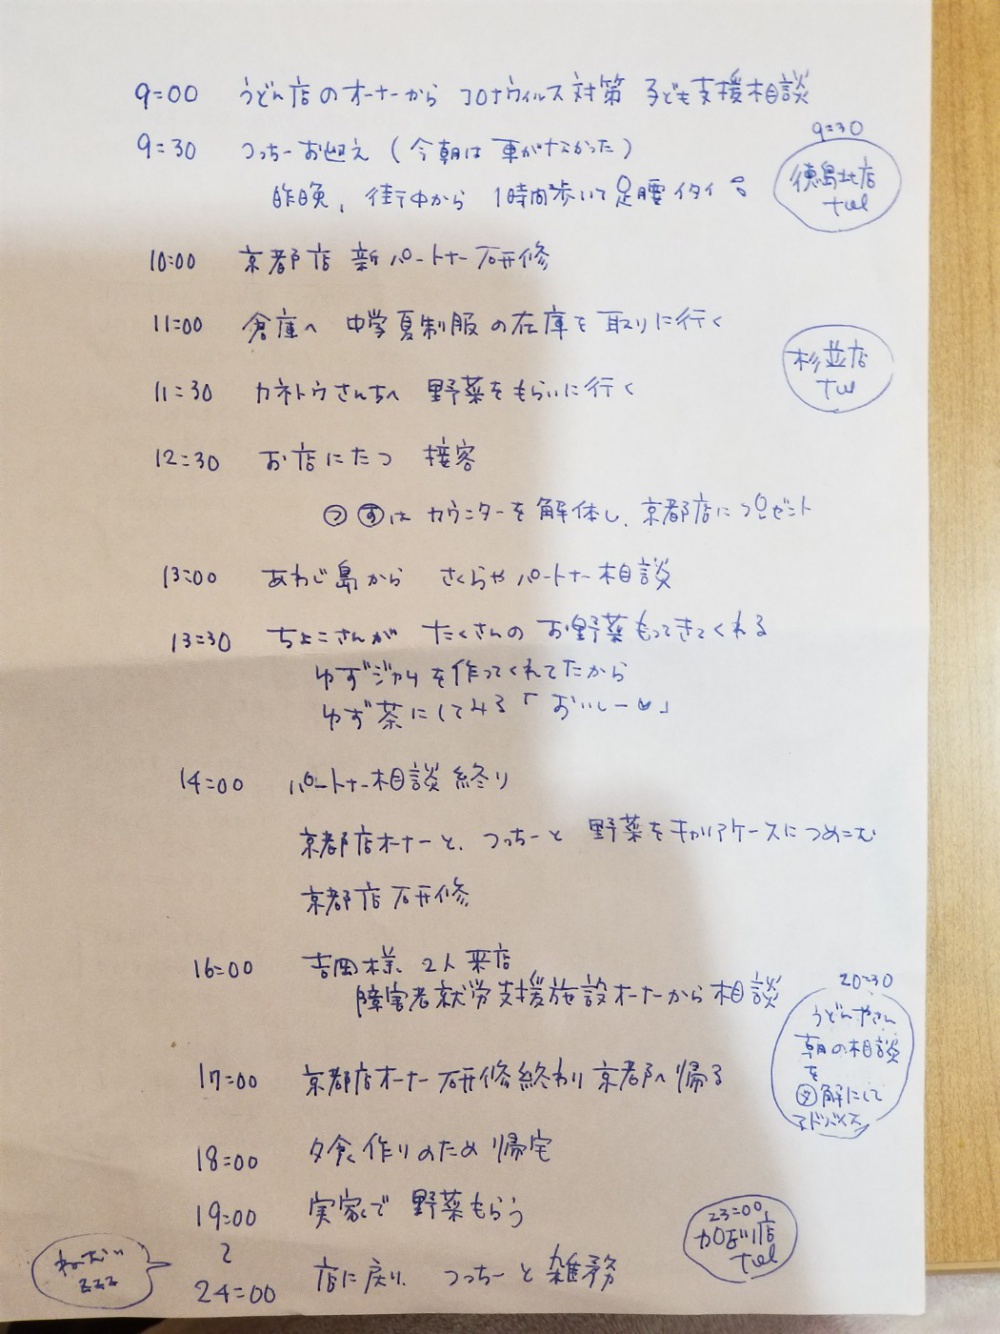 9:00 うどん店のオーナーから コロナウィルス対策 子ども支援相談
9:30 つっちーお迎え (今朝は車がなかった)
昨晩、街中から 1時間歩いて足腰イタイ
9:30
徳島北店
tel
10:00 京都店 新パートナー研修
11:00 倉庫へ 中学夏制服の在庫を取りに行く
杉並店
tel
11:30 カネトウさんちへ 野菜をもらいに行く
12:30 お店にたつ 接客
つ すは カウンターを解体し、京都店にプレゼント
13:00 あわじ島から さくらやパートナー相談
13:30 ちよこさんが たくさんの お野菜もってきてくれる
ゆずジャムを作ってくれてたから
ゆず茶にしてみる「おいしー♥」
14:00 パートナー相談終り
京都店オーナーと、つっちーと 野菜をキャリアケースにつめこむ
京都店研修
16:00 吉岡様、2人来店
障害者就労支援施設オーナーから相談
20:30
うどんやさん
朝の相談
を
図解にして
アドバイス
17:00 京都店オーナー研修終わり 京都へ帰る
18:00 夕食作りのため帰宅
19:00 実家で 野菜もらう
〜
24:00 店に戻り、つっちーと雑務
23:00
加古川店
tel
ねーむい
zzz